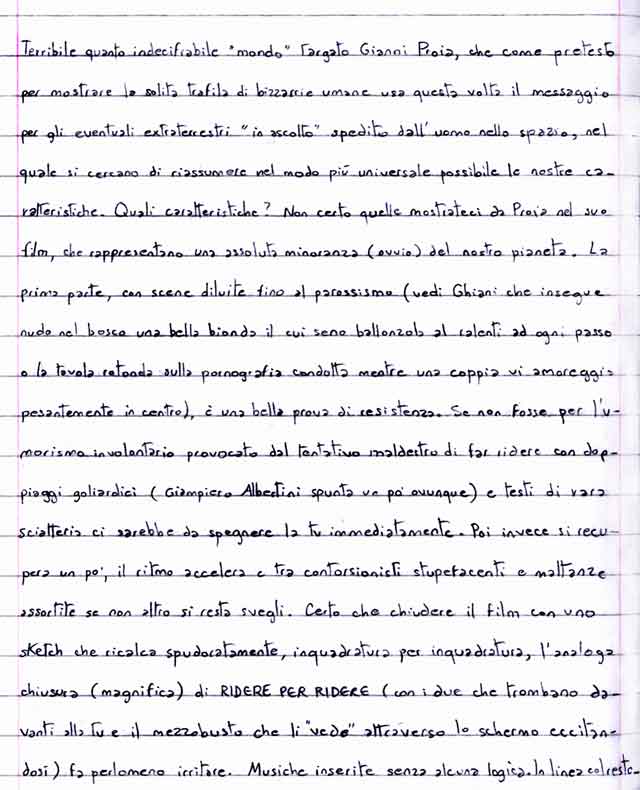 Terribile quanto indecifrabile "mondo" targato Gianni Proia, che come pretesto
per mostrare la solita trafila di bizzarrie umane usa questa volta il messaggio
per gli eventuali extraterrestri "in ascolto" spedito dall'uomo nello spazio, nel
quale si cercano di riassumere nel modo più universale possibile le nostre ca-
ratteristiche. Quali caratteristiche? Non certo quelle mostrateci da Proia nel suo
film, che rappresentano una assoluta minoranza (ovvio) del nostro pianeta. La
prima parte, con scene diluite fino al parossismo (vedi Ghiani che insegue
nudo nel bosco una bella bionda il cui seno ballonzola al ralenti ad ogni passo
o la tavola rotonda sulla pornografia condotta mentre una coppia vi amoreggia
pesantemente in centro), è una bella prova di resistenza. Se non fosse per l'u-
morismo involontario provocato dal tentativo maldestro di far ridere con dop-
piaggi goliardici (Giampiero Albertini spunta un po' ovunque) e testi di rara
sciatteria ci sarebbe da spegnere la tv immediatamente. Poi invece si recu-
pera un po', il ritmo accelera e tra contorsionisti stupefacenti e mattanze
assortite se non altro si resta svegli. Certo che chiudere il film con uno
sketch che ricalca spudoratamente, inquadratura per inquadratura, l'analoga
chiusura (magnifica) di RIDERE PER RIDERE (con i due che trombano da-
vanti alla tv e il mezzobusto che li "vede" attraverso lo schermo eccitan-
dosi) fa perlomeno irritare. Musiche inserite senza alcuna logica. In linea col resto.